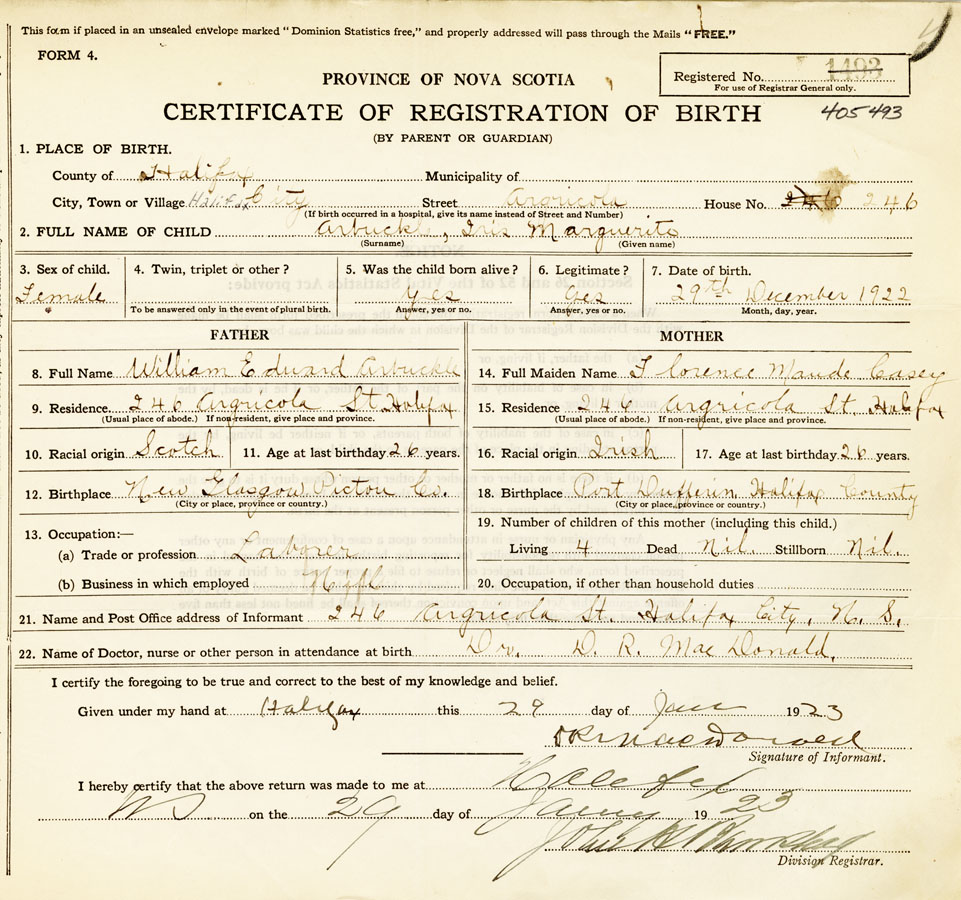 This form if placed in an unsealed envelope marked "Dominion Statistics free," and properly addressed will pass through the Mails "FREE."
FORM 4.
PROVINCE OF NOVA SCOTIA
Registered No. 1493
For use of Registrar General only.
CERTIFICATE OF REGISTRATION OF BIRTH 405493
(BY PARENT OR GUARDIAN)
1. PLACE OF BIRTH.
County of Halifax Municipality of
City, Town or Village Halifax City Street Argricola House No. 246 246
(If birth occurred in a hospital, give its name instead of Street and Number)
2. FULL NAME OF CHILD Arbuckle, Iris Marguerite
(Surname) (Given name)
3. Sex of child. 4. Twin, triplet or other? 5. Was the child born alive? 6. Legitimate? 7. Date of birth.
Female yes yes 29th December 1922
To be answered only in the event of plural birth. Answer, yes or no. Answer, yes or no. Month, day, year.
FATHER MOTHER
8. Full Name William Edward Arbuckle 14. Full Maiden Name Florence Maude Casey
9. Residence. 246 Argricola St. Halifax 15. Residence 246 Argricola St Halifax
(Usual place of abode.) If non-resident, give place and province. (Usual place of abode.) If non-resident, give place and province.
10. Racial origin Scotch 11. Age at last birthday 26 years. 16. Racial origin Irish 17. Age at last birthday 26 years.
12. Birthplace New Glasgow Pictou Co. 18. Birthplace Port Dufferin, Halifax County
(City or place, province or country.) (City or place, province or country.)
13. Occupation:— 19. Number of children of this mother (including this child.)
(a) Trade or profession Laborer Living 4 Dead Nil. Stillborn Nil.
(b) Business in which employed 20. Occupation, if other than household duties
21. Name and Post Office address of Informant 246 Argricola St. Halifax City, N. S.
22. Name of Doctor, nurse or other person in attendance at birth Dr. D. R. MacDonald,
I certify the foregoing to be true and correct to the best of my knowledge and belief.
Given under my hand at Halifax this 29 day of Jan 1923
D R MacDonald
Signature of Informant.
I hereby certify that the above return was made to me at Halifax
NS on the 29 day of Jany 1923
John
Division Registrar.